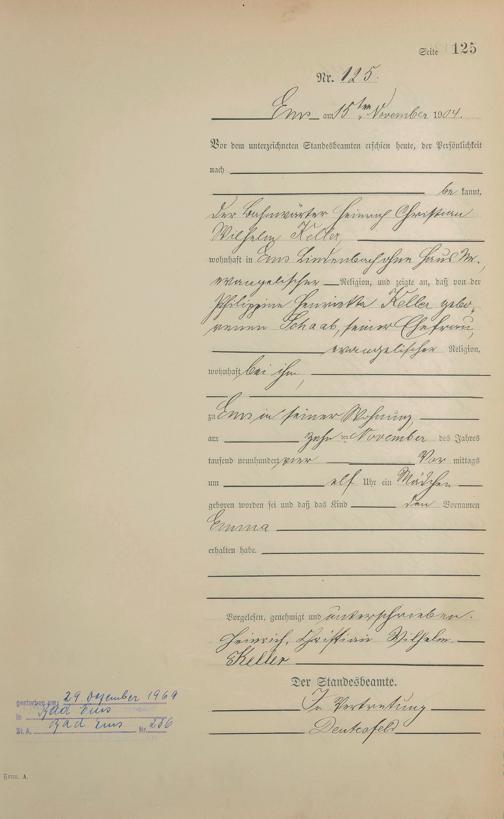 Seite 125
Nr. 125.
Ems am 15ten November 1904.
Vor dem unterzeichneten Standesbeamten erschien heute, der Persönlichkeit
nach
be kannt,
der Bahnwärter Heinrich Christian
Wilhelm Keller,
wohnhaft in Ems Lindenbach ohne Haus Nr.,
evangelischer Religion, und zeigte an, daß von der
Philippine Henriette Keller gebo-
renen Schaab, seiner Ehefrau,
evangelischer Religion,
wohnhaft bei ihm,
zu Ems in seiner Wohnung,
am zehn ten November des Jahres
tausend neunhundert vier Vor mittags
um elf Uhr ein Mädchen
geboren worden sei und daß das Kind den Vornamen
Emma
erhalten habe.
Vorgelesen, genehmigt und unterschrieben.
Heinrich, Christian Wilhelm
Keller
Der Standesbeamte.
In Vertretung
gestorben am 29 Dezember 1969
in Bad Ems
St. A. Bad Ems Nr. 286
Form. A.